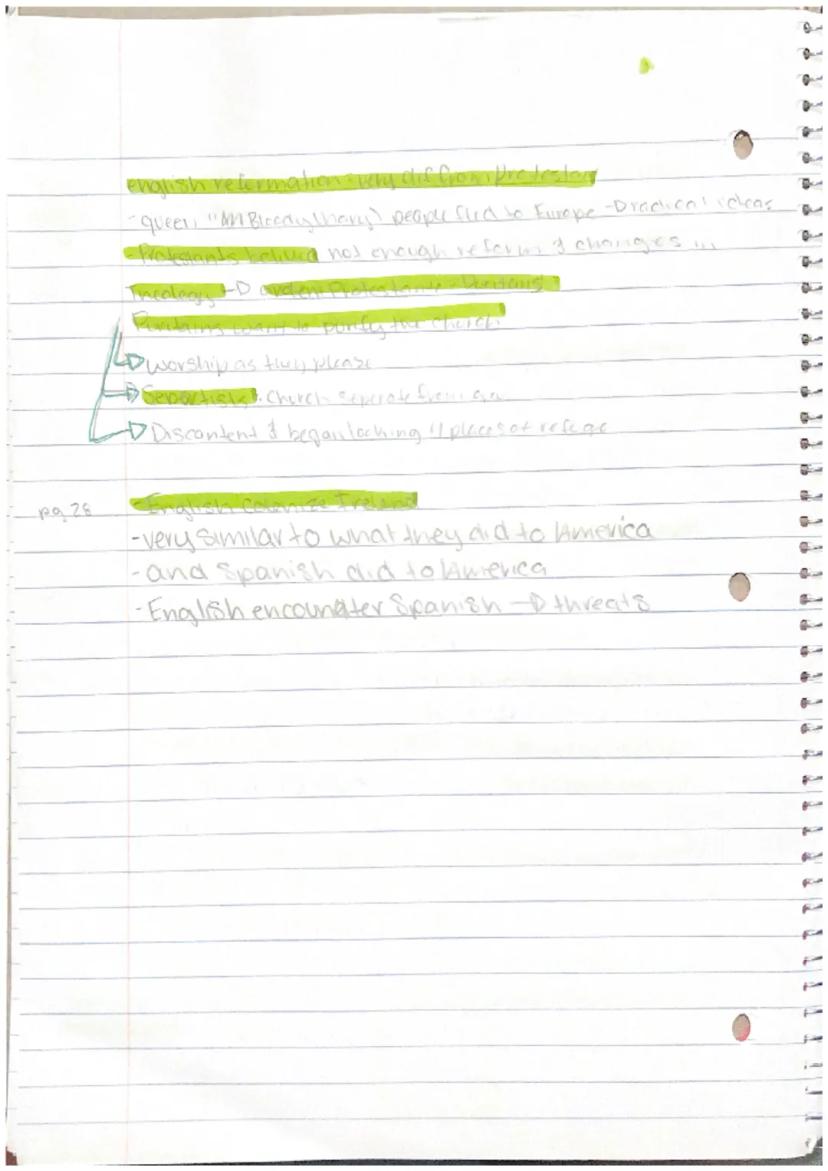 english reformation very dif from Protestan
- queen "Bloody Mary" people fled to Europe → radical ideas
- Protestants belived not enough reform & changes in
Theology → ardent Protestants - Puritans
Puritans want to purify the church
→ worship as they please
→ Sepertists. Church seperate from
→ Discontent & began looking 4 places of refuge
pg. 28 - English Colonize Ireland
- very similar to what they did to America
- and Spanish did to America
- English encounter Spanish → threats